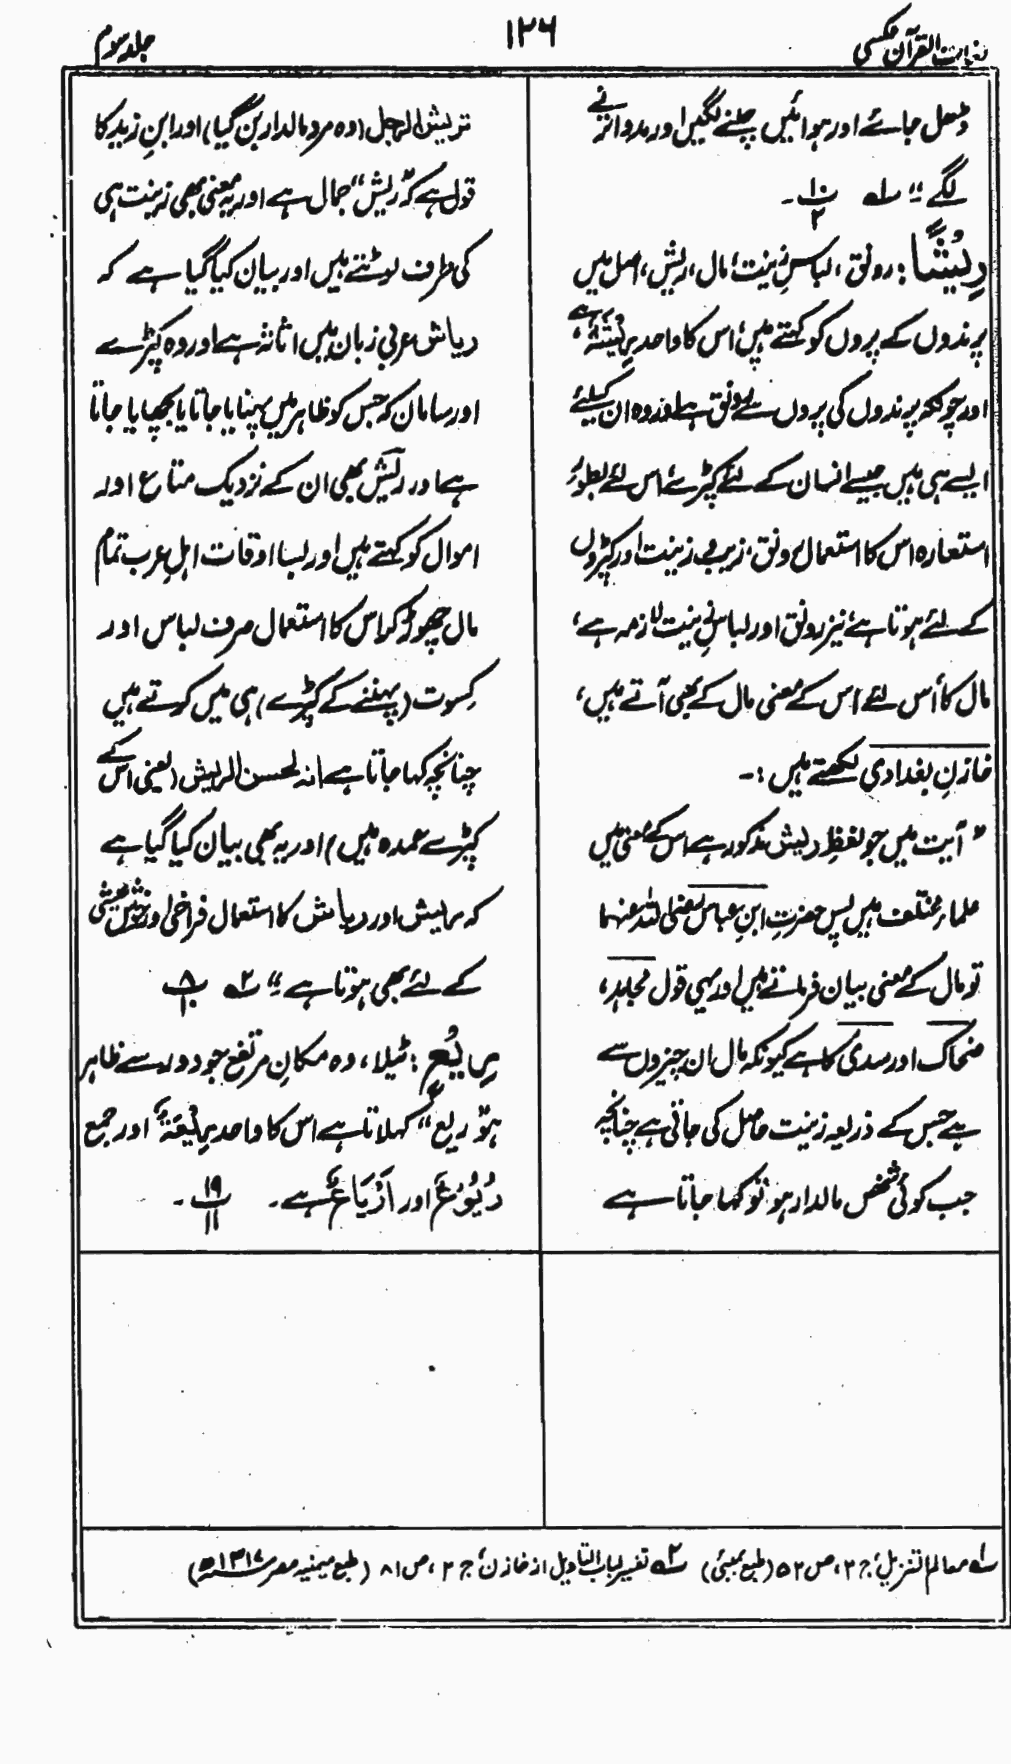 لغات القرآن عکسی
۱۲۶
جلد سوم
ڈھل جائے اور ہوائیں چلنے لگیں اور مدد اترنے
لگے“ ؎۱ ۱۰/۲ -
رِیْشًا : رونق، لباسِ زینت، مال، ریش، اصل میں
پرندوں کے پروں کو کہتے ہیں، اس کا واحد رِیْشَۃٌ ہے،
اور چونکہ پرندوں کی پروں سے رونق ہے اور وہ ان کیلئے
ایسے ہی ہیں جیسے انسان کے لئے کپڑے اس لئے بطور
استعارہ اس کا استعمال رونق، زیب و زینت اور کپڑوں
کے لئے ہوتا ہے، نیز رونق اور لباسِ زینت لازمہ ہے،
مال کا، اس لئے اس کے معنی مال کے بھی آتے ہیں،
خازن بغدادی لکھتے ہیں :-
”آیت میں جو لفظِ ریش مذکور ہے اس کے معنی میں
علماء مختلف ہیں پس حضرتِ ابنِ عباس رضی اللہ عنہما
تو مال کے معنی بیان فرماتے ہیں اور یہی قول مجاہد،
ضحاک اور سدی کا ہے کیونکہ مال ان چیزوں سے
ہے جس کے ذریعہ زینت حاصل کی جاتی ہے چنانچہ
جب کوئی شخص مالدار ہو تو کہا جاتا ہے
تریش الرجل (وہ مرد مالدار بن گیا) اور ابنِ زید کا
قول ہے کہ ”ریش“ جمال ہے اور یہ معنی بھی زینت ہی
کی طرف لوٹتے ہیں اور بیان کیا گیا ہے کہ
ریاش عربی زبان میں اثاثہ ہے اور وہ کپڑے
اور سامان کہ جس کو ظاہر میں پہنایا جاتا یا بچھایا جاتا
ہے اور ریش بھی ان کے نزدیک متاع اور
اموال کو کہتے ہیں اور بسا اوقات اہلِ عرب تمام
مال چھوڑ کر اس کا استعمال صرف لباس اور
کِسوت (پہننے کے کپڑے) ہی میں کرتے ہیں
چنانچہ کہا جاتا ہے انہ لحسن الریش (یعنی اس کے
کپڑے عمدہ ہیں) اور یہ بھی بیان کیا گیا ہے
کہ ریش اور ریاش کا استعمال فراخی اور خوش عیشی
کے لئے بھی ہوتا ہے“ ؎۲ ۸/۱۰
رِیْعٍ : ٹیلا، وہ مکانِ مرتفع جو دور سے ظاہر
ہو ”ریع“ کہلاتا ہے اس کا واحد رِیْعَۃٌ اور جمع
رُیُوْعٌ اور اَرْیَاعٌ ہے۔ ۱۹/۱۱ -
؎۱ معالم التنزیل، ج ۳، ص ۵۲ (طبع بمبئی) ؎۲ تفسیر لباب التاویل از خازن، ج ۲، ص ۸۱ (طبع میمنیہ مصر ۱۳۱۷ھ)